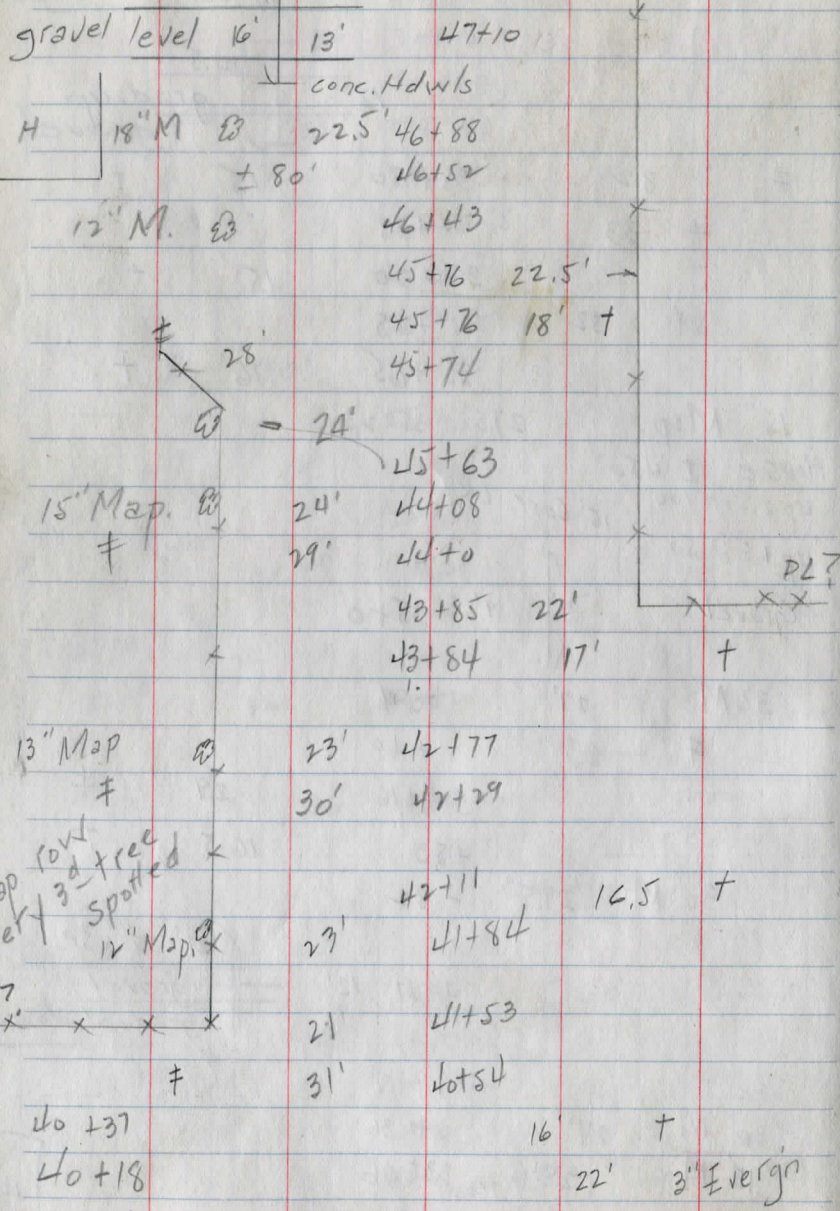 gravel level 16' 13' 47+10
conc. Hdwls
H 18" M 22.5' 46+88
± 80' 46+52
12" M. 46+43
45+76 22.5'
45+76 18'
28' 45+74
24'
45+63
15" Map. 24' 44+08
29' 44+0
PL?
43+85 22'
43+84 17'
13" Map 23' 42+77
30' 42+29
row
3d tree
spotted
42+11 16.5
12" Map. 23' 41+84
?
21' 41+53
31' 40+54
40+37 16'
40+18 22' 3" Evergn